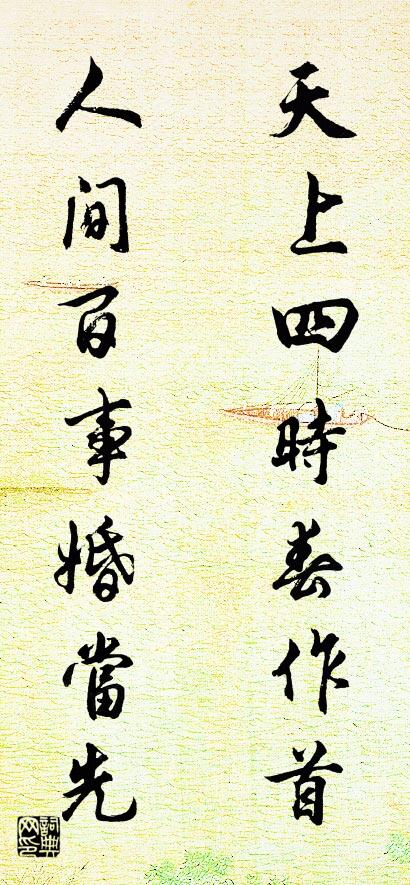 天上四時春作首
人间百事婚當先
詞典网印